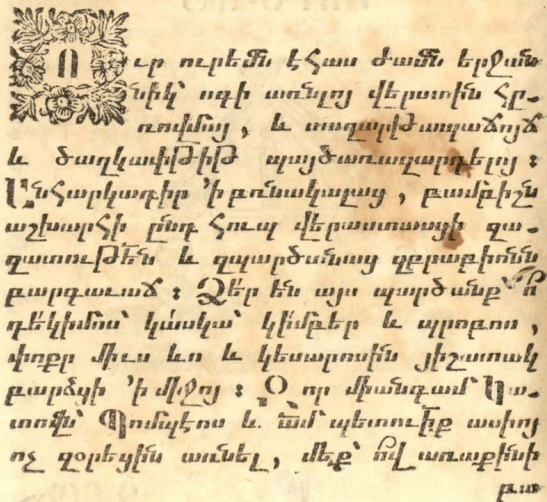 Ուր ուրեմն է հաս ժամն երջան
նիկ՝ ոգի առնլոյ վերստին Հը֊
ռովմայ, և տաղարթապաճոյճ
և ծաղկափթիթ պայծառազարդելոյ ։
Անհարկագիր ՚ի բռնակալաց, բամբիշն
աշխարհի ընդ հուպ վերաստասցի զա֊
զատութեն և զպարծանաց զքրաբիոնն
բարգաւաճ ։ Չեր են այս պարծանք՝
դէկիմոս՝ կասկա՝ կիմբեր և պրոբոս,
փոքր միւս ևս և կեսարոսին յիշատակ
բարձցի ՚ի միջոյ ։ Օ որ միանգամ՝ Կա֊
տովն՝ Պոմպէոս և պետուիք ասիոյ
ոչ զօրեցին առնել, մեք՝ առաքինի
բա